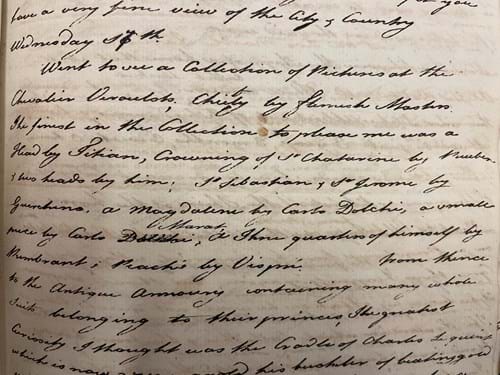 have a very fine view of the City & Country
Wednesday 5th.
Went to see a Collection of Pictures at the
Chevalier Veroulsts, Chiefly by flemish Masters.
The finest in the Collection to please me was a
Head by Titian, Crowning of St Chatarine by Rueben
& two heads by him; St Sebastian & St Jerome by
Guerchino, a Magdalene by Carlo Dolchi, a small
piece by Carlo Marat, A Three quarters of himself by
Rembrant; Peaches by Vispré. from thence
to the Antique Armoury containing many whole
Suits belonging to their princes, The greatest
Curiosity I thought was the Cradle of Charles
which is now his buckler of beating gold